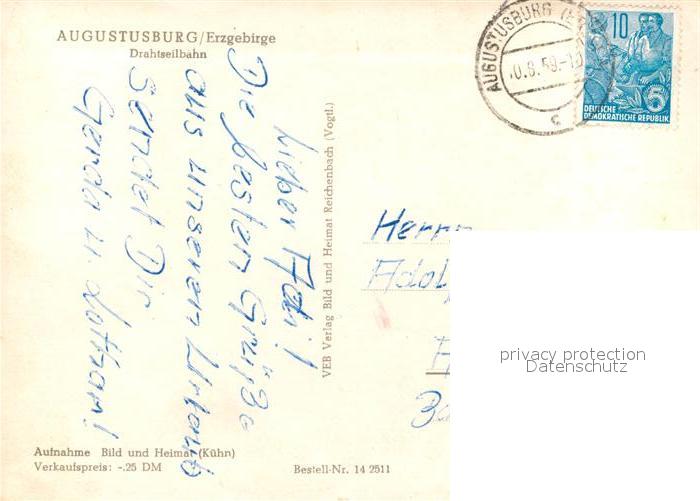 AUGUSTUSBURG/Erzgebirge
Drahtseilbahn
AUGUSTUSBURG (E
0.8.59-1
c
10
5
DEUTSCHE
DEMOKRATISCHE REPUBLIK
Lieber Adi!
Die besten Grüße
aus unseren Urlaub
sendet Dir
Gerda u. Lothar!
VEB Verlag Bild und Heimat Reichenbach (Vogtl.)
Herrn
Adol
privacy protection
Datenschutz
Aufnahme Bild und Heimat (Kühn)
Verkaufspreis: -.25 DM
Bestell-Nr. 14 2511